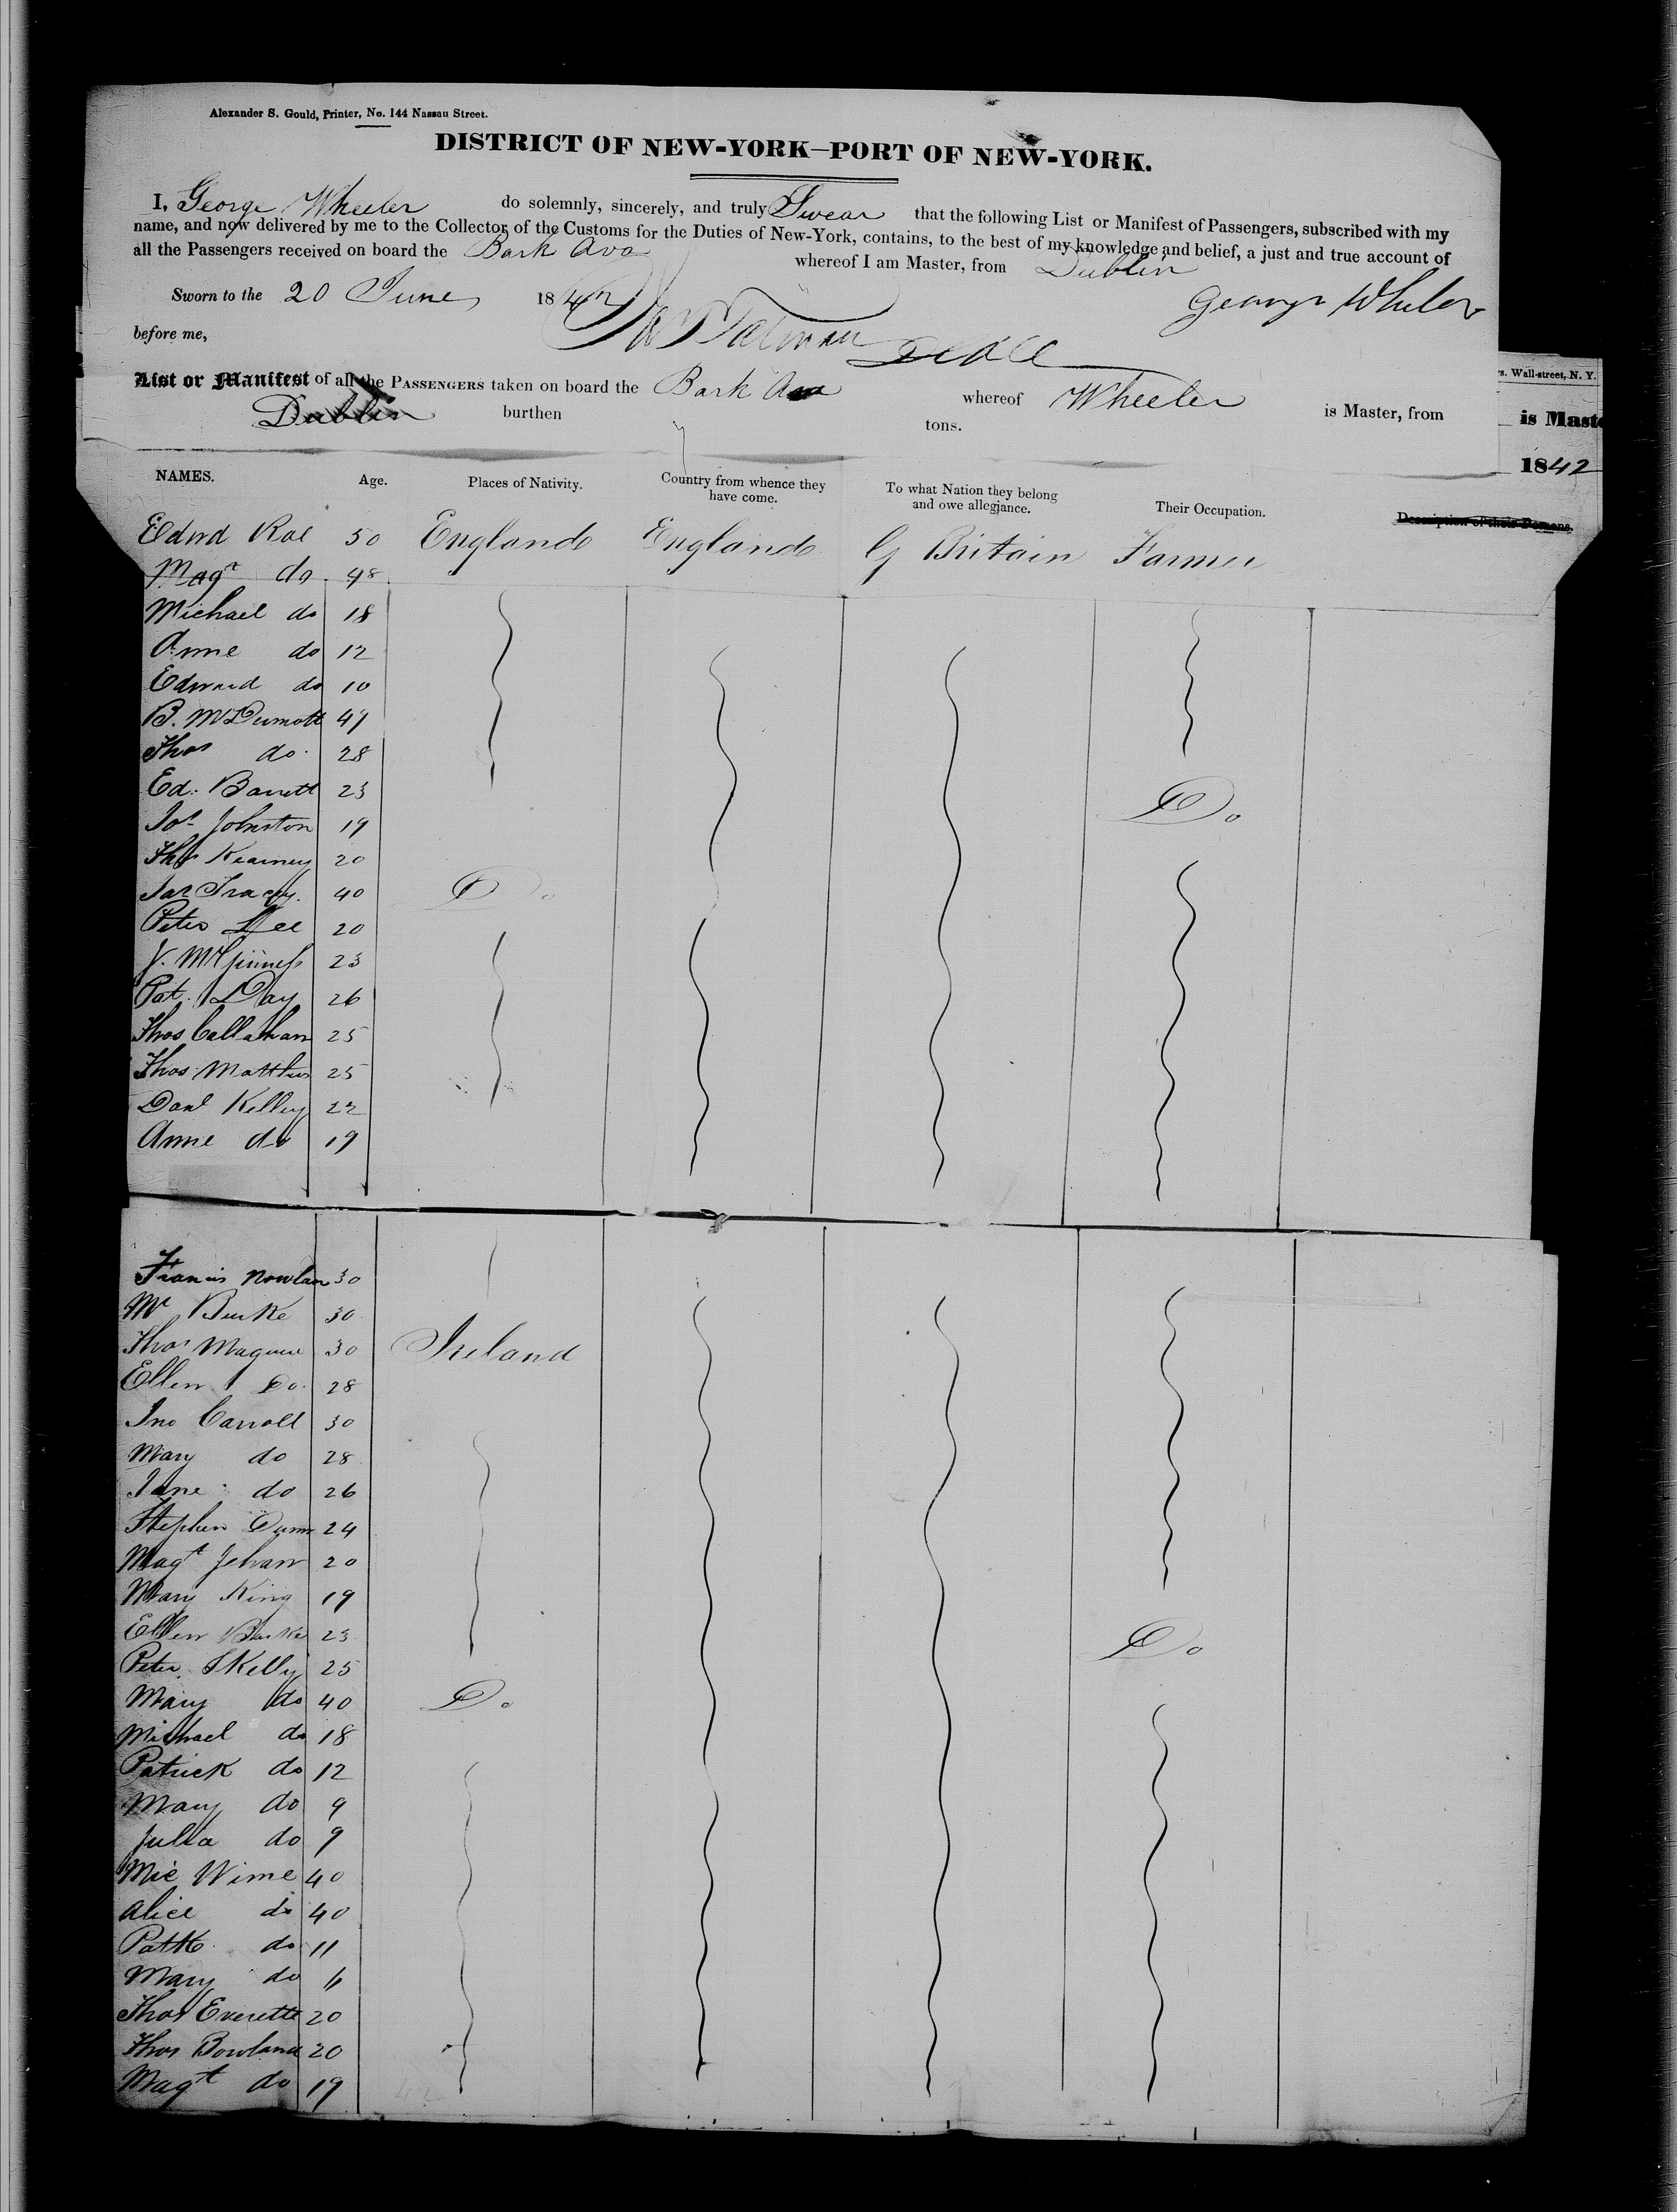 Alexander S. Gould, Printer, No. 144 Nassau Street.
DISTRICT OF NEW-YORK—PORT OF NEW-YORK.
I, George Wheeler do solemnly, sincerely, and truly Swear that the following List or Manifest of Passengers, subscribed with my
name, and now delivered by me to the Collector of the Customs for the Duties of New-York, contains, to the best of my knowledge and belief, a just and true account of
all the Passengers received on board the Bark Ava whereof I am Master, from Dublin
Sworn to the 20 June 1842 George Wheeler
before me,
List or Manifest of all the PASSENGERS taken on board the Bark Ava whereof Wheeler is Master, from
Dublin burthen tons.
s. Wall-street, N. Y.
is Maste
1842
NAMES. Age. Places of Nativity. Country from whence they have come. To what Nation they belong and owe allegiance. Their Occupation. Description of their Persons.
Edwd Roe 50 England England G Britain Farmer
Magt do 48
Michael do 18
Anne do 12
Edward do 10
B. McDermott 47
Thos do 28
Ed. Barrett 23 Do
Jos Johnston 19
Thos Kearney 20
Jas Tracey 40 Do
Peter Lee 20
J. McGinness 23
Pat. Day 26
Thos Callahan 25
Thos Matthews 25
Danl Kelley 22
Anne do 19
Francis Nowlan 30
Mc Burke 30
Thos Maguire 30 Ireland
Ellen Do 28
Jno Carroll 30
Mary do 28
Jane do 26
Stephen Dunn 24
Magt Jehan 20
Mary King 19
Ellen Burke 23 Do
Peter Skelly 25
Mary do 40 Do
Michael do 18
Patrick do 12
Mary do 9
Julia do 9
Mic Wime 40
Alice do 40
Patk do 11
Mary do 6
Thos Everette 20
Thos Bowland 20
Magt do 19
42